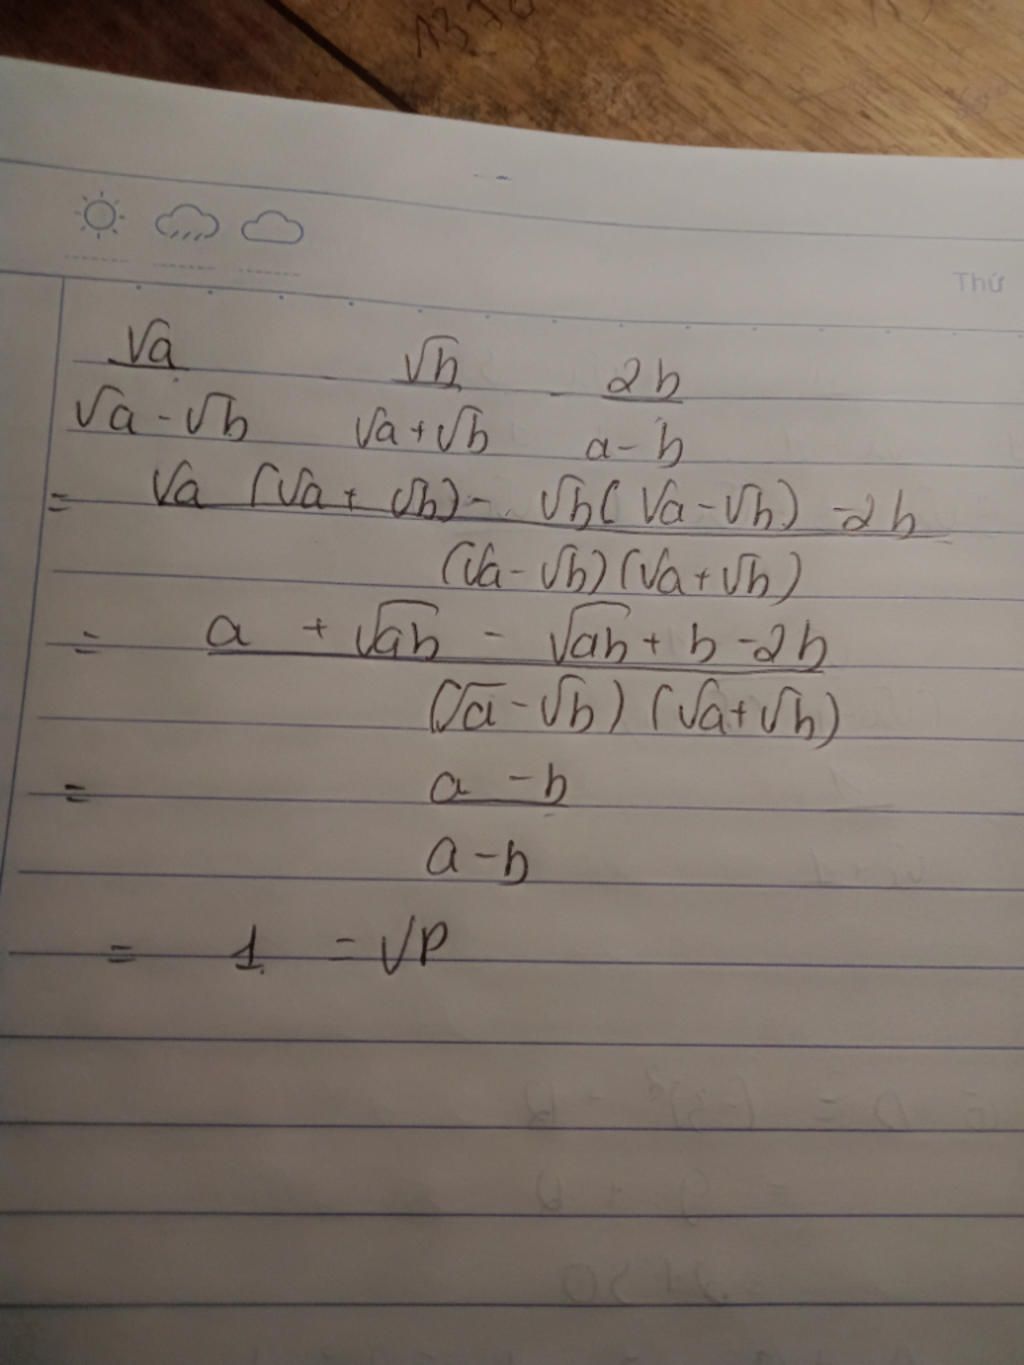 Thứ
√a / (√a - √b) - √b / (√a + √b) - 2b / (a - b)
= (√a (√a + √b) - √b (√a - √b) - 2b) / ((√a - √b) (√a + √b))
= (a + √ab - √ab + b - 2b) / ((√a - √b) (√a + √b))
= (a - b) / (a - b)
= 1 = VP